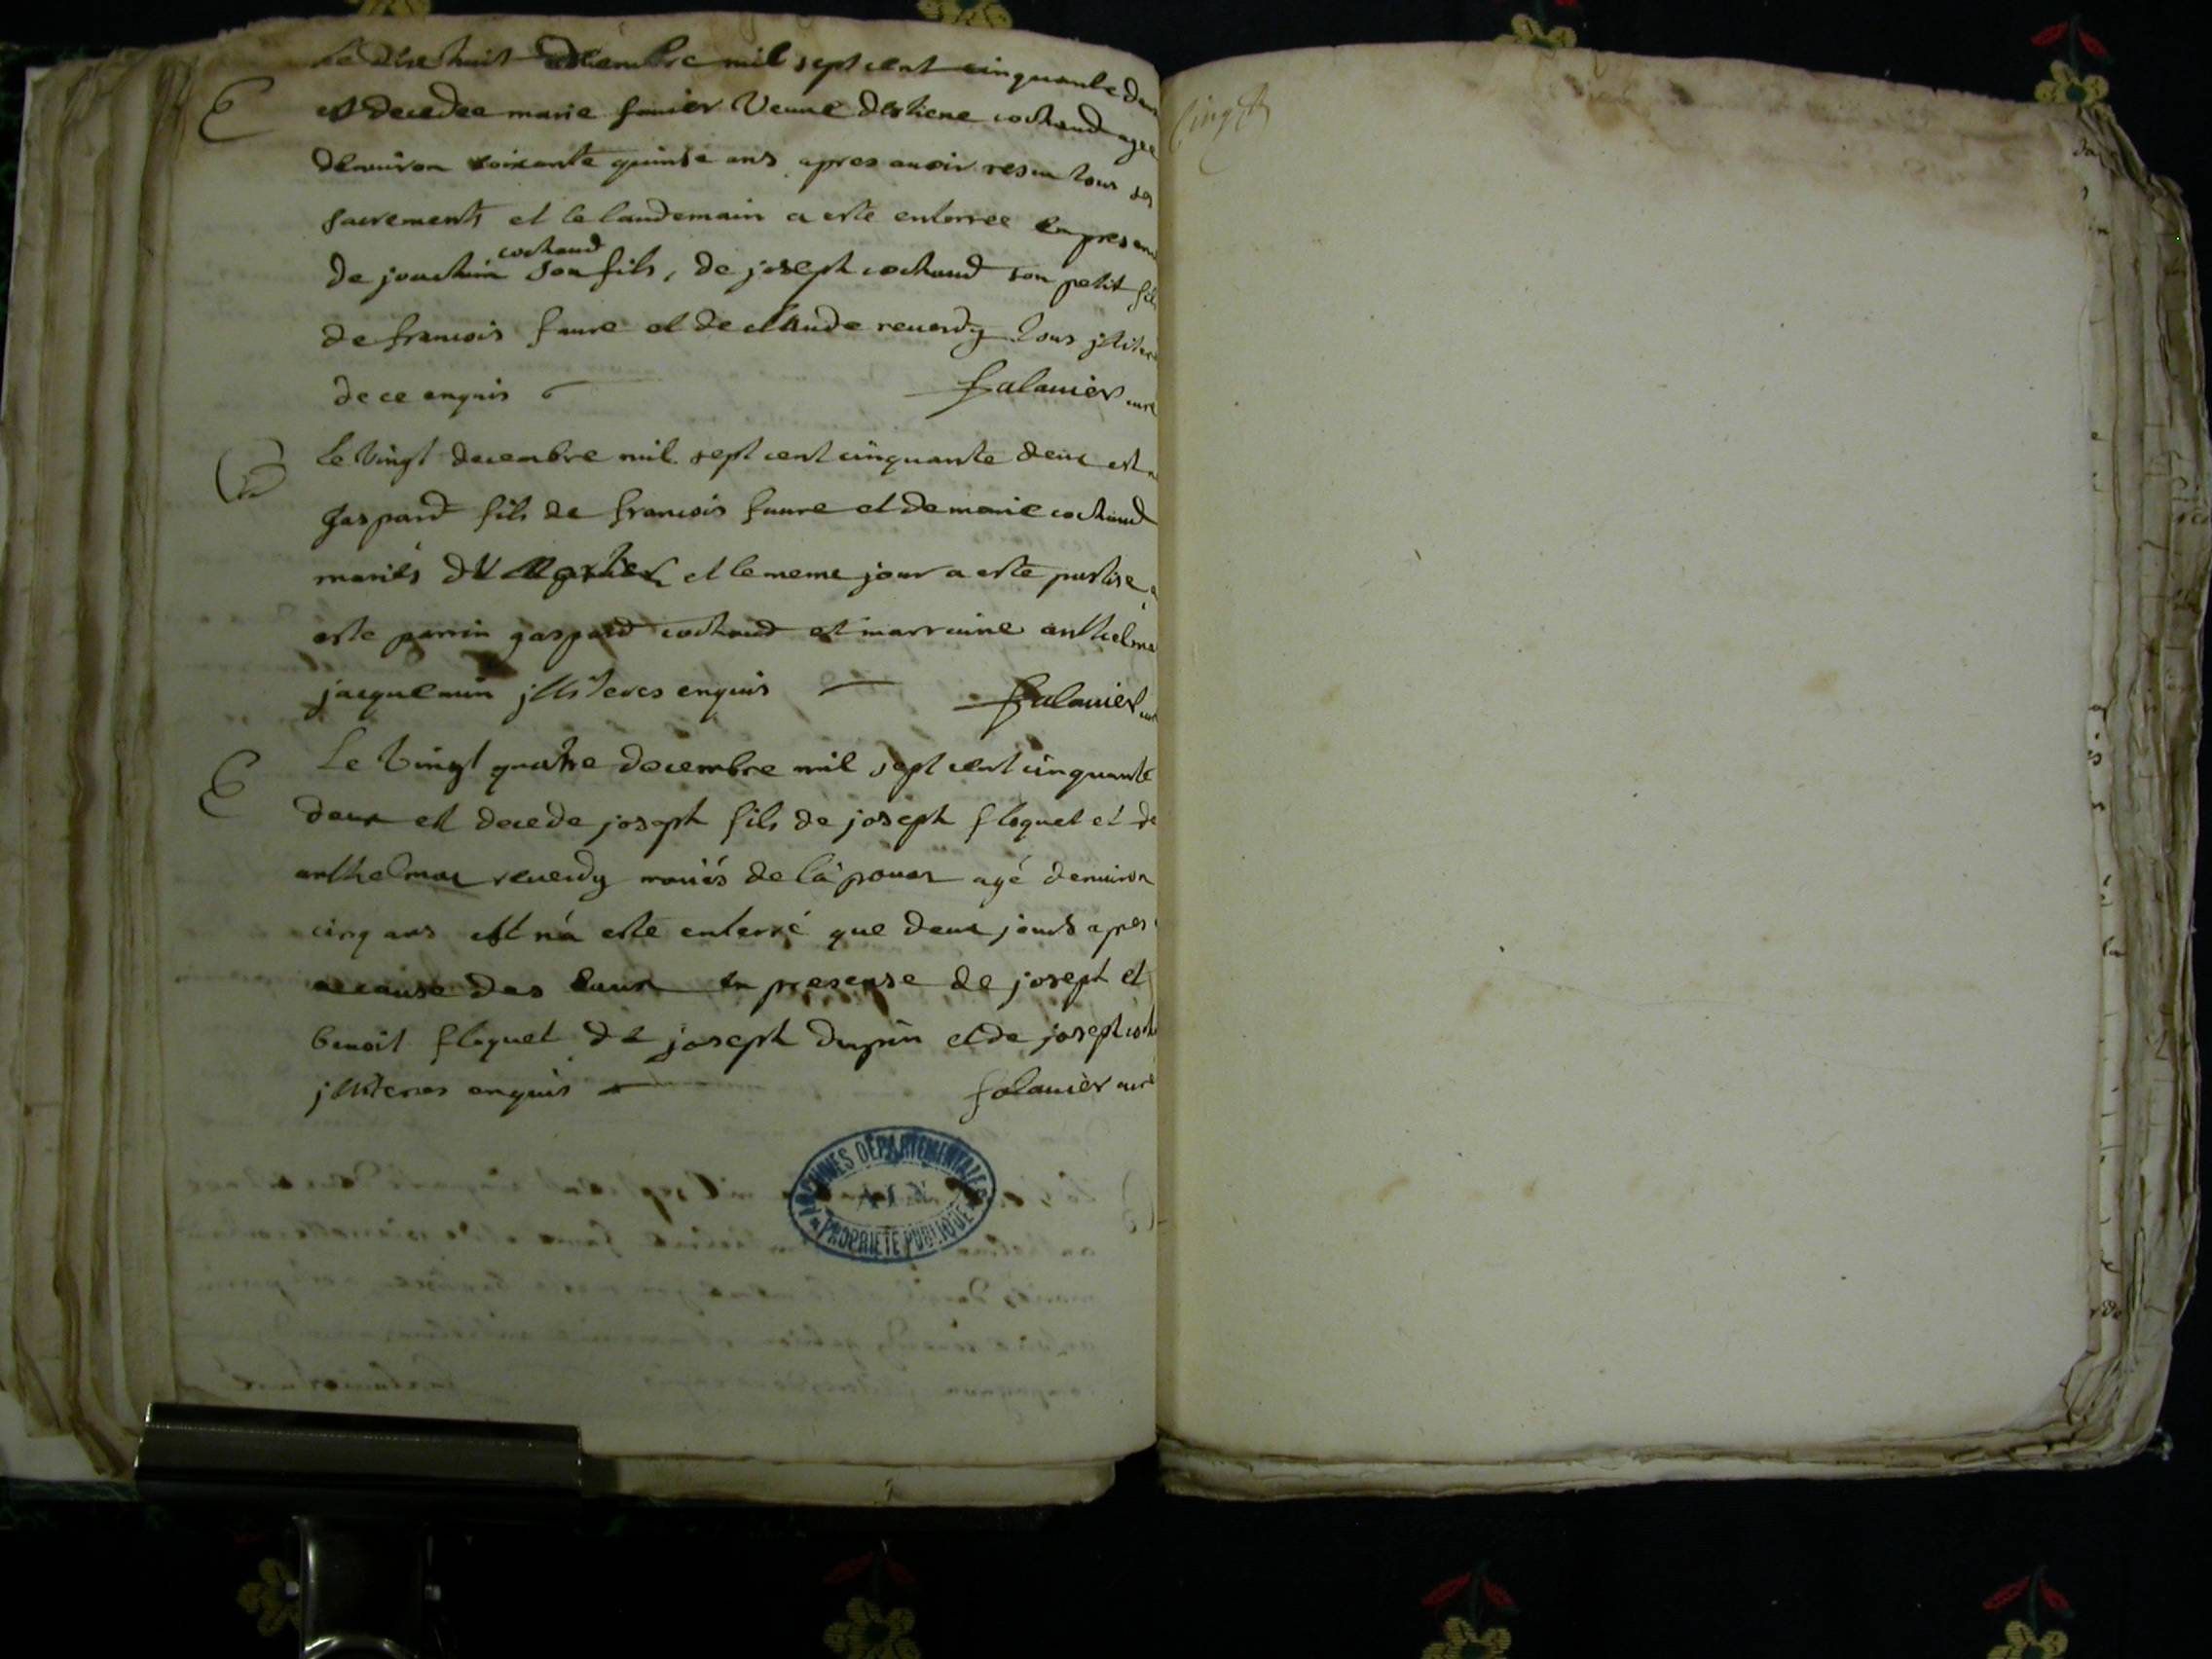 Le dixe huit decembre mil sept cent cinquante deux
E
est decedee marie Venue destiene cochaud agee
denuiron soixante quinse ans apres auoir resu tous ses
sacrements et le landemain a esté enterree en presen
cochaud
de joachim son fils, de joseph cochaud son petit fils
de francois faure et de claude reuerdy tous jlliter
de ce enquis curé
Le vingt decembre mil sept cent cinquante deux est n
gaspard fils de francois faure et de marie cochaud
mariés et le meme jour a este
este parrin gaspard cochaud et marraine anthelma
jacquemin jlliteres enquis
E
Le vingt quatre decembre mil sept cent cinquante
deux est decede joseph fils de joseph floquet et de
reuerdy mariés de agé denuiron
cinq ans et n'a esté enterré que deux jours apres
a cause des eaux en presense de joseph et
benoit floquet de joseph dupin et de joseph coch
jlliteres enquis curé
ARCHIVES DÉPARTEMENTALES
AIN
PROPRIÉTÉ PUBLIQUE